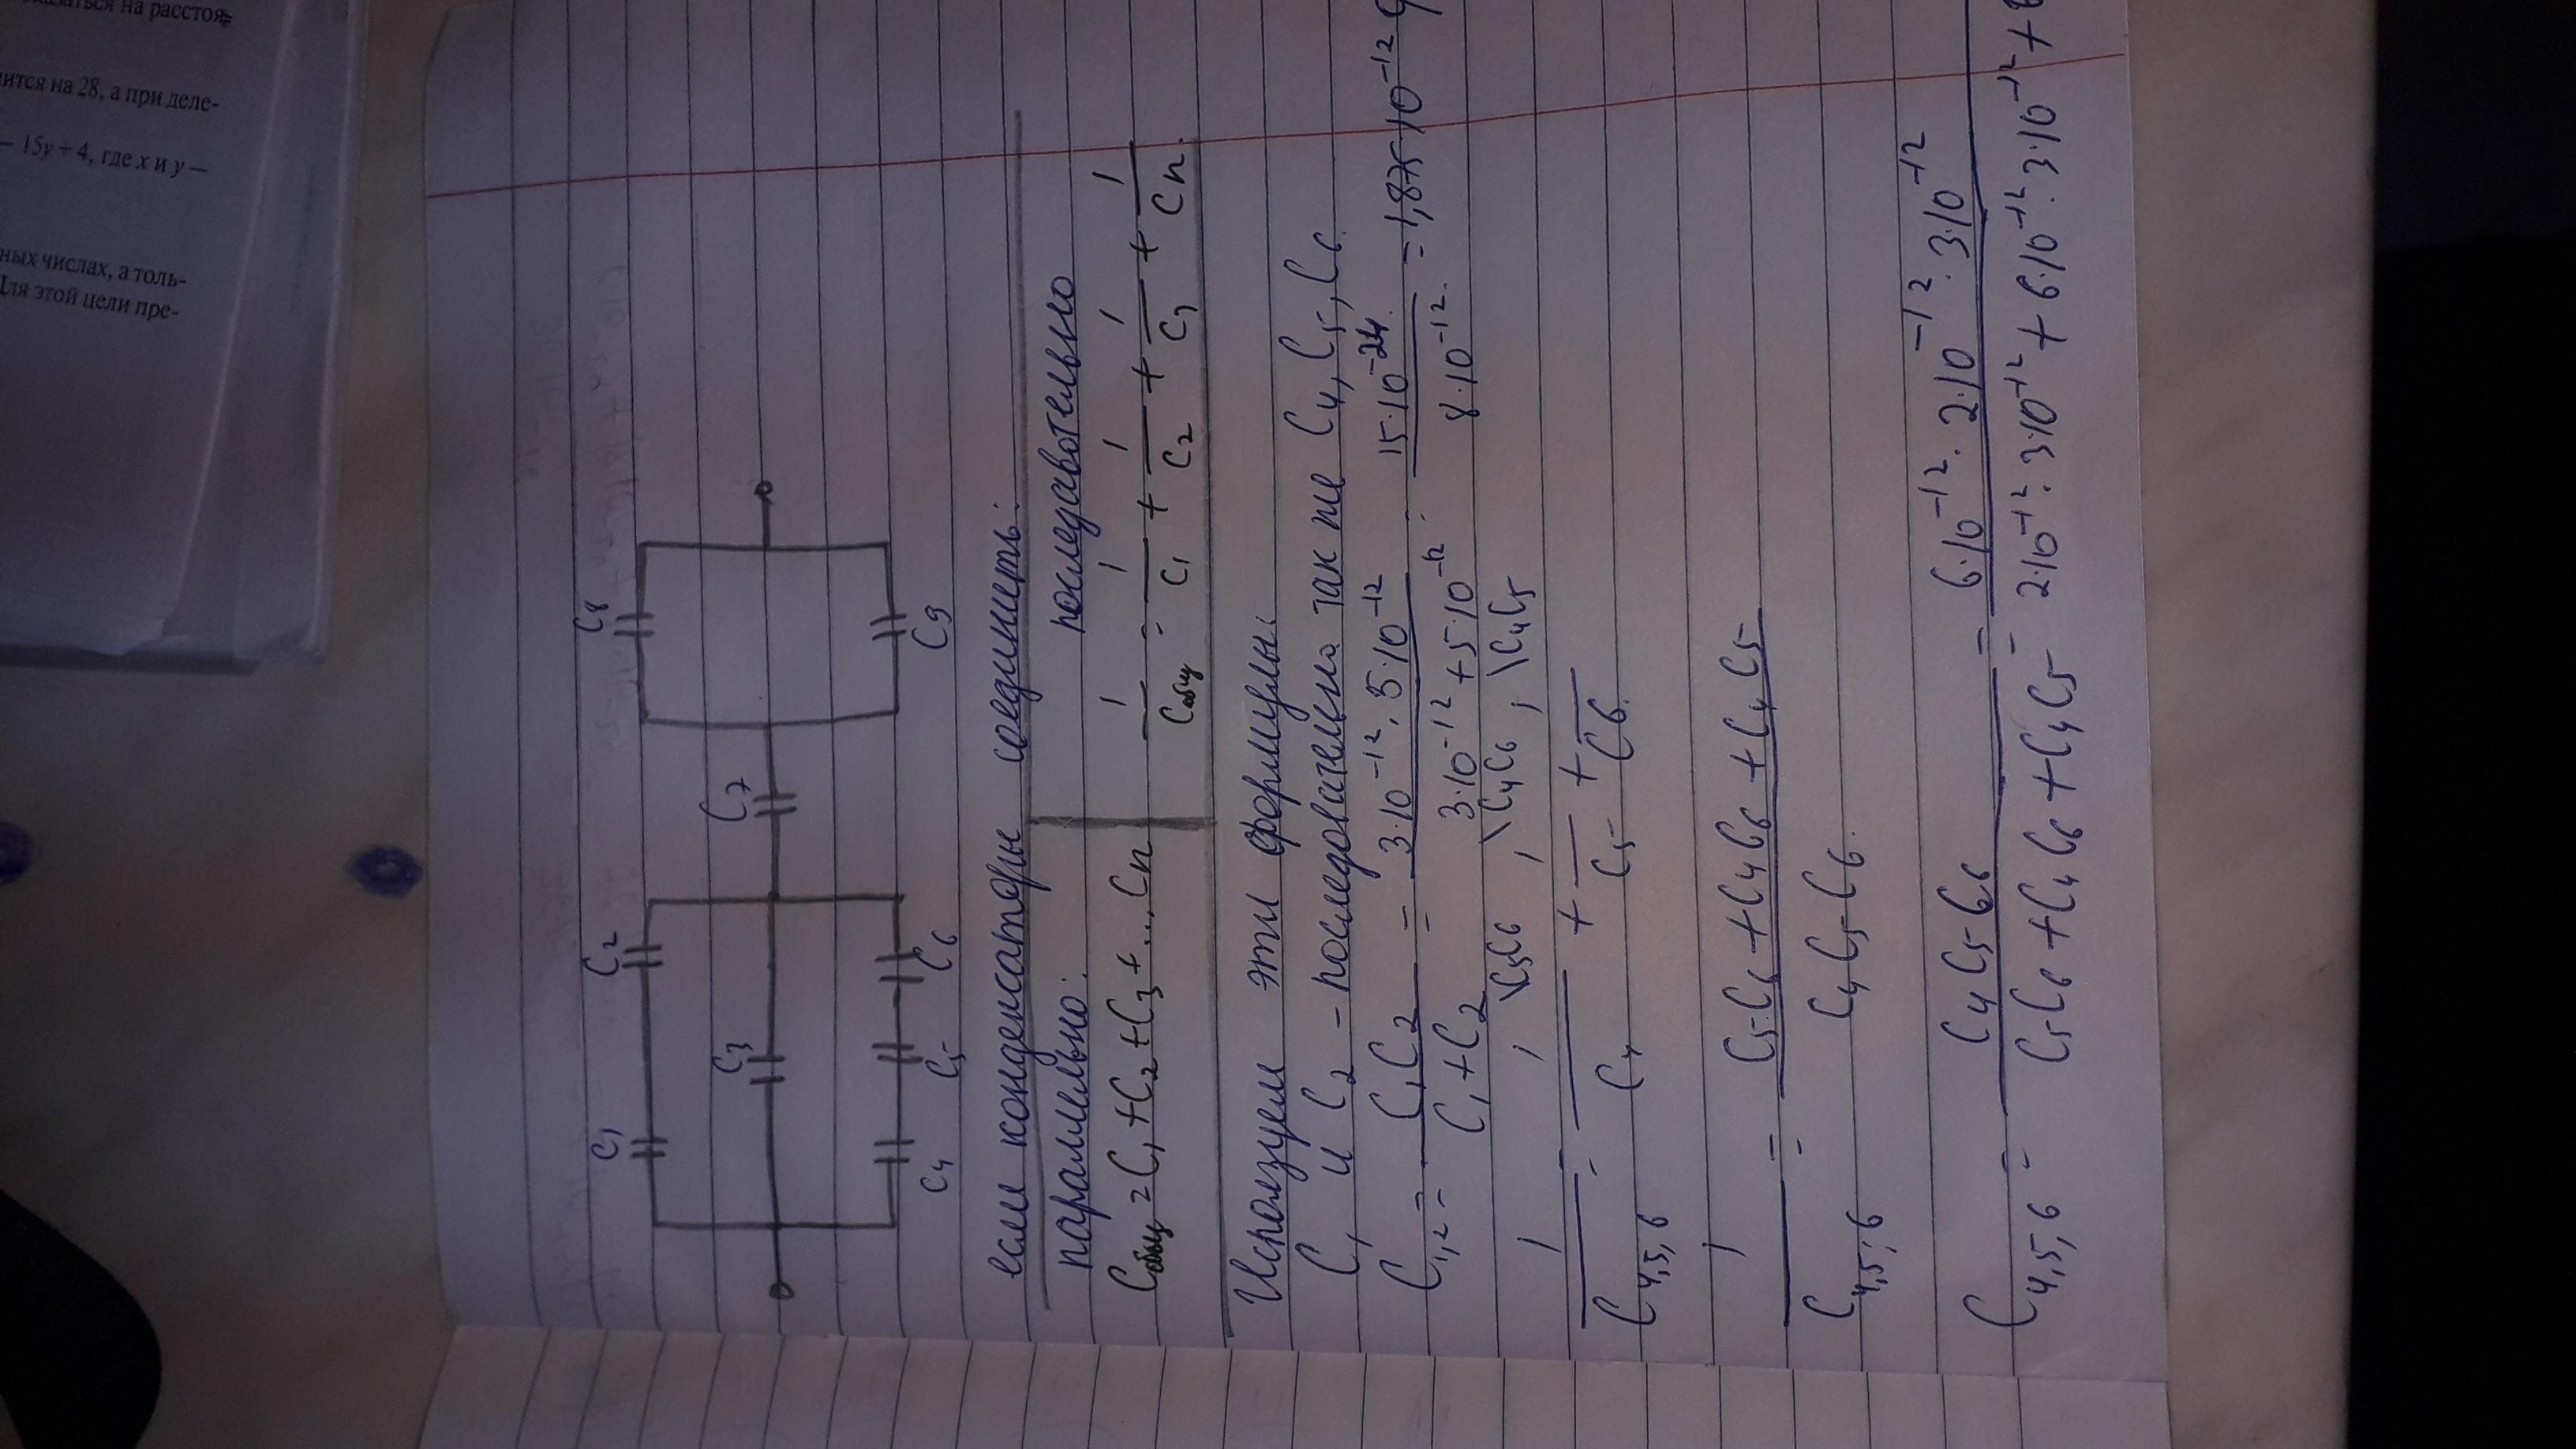 ться на расстоя-
ится на 28, а при деле-
— 15y + 4, где x и y —
ных числах, а толь-
Для этой цели пре-
C1 C2 C8
C3 C7
C4 C5 C6 C9
если конденсаторы соединить:
параллельно: последавотельно
Cобщ = C1 + C2 + C3 + ... Cn 1/Cобщ = 1/C1 + 1/C2 + 1/C3 + 1/Cn.
Используем эти формулы:
C1 и C2 - последовательно так же C4, C5, C6.
C1,2 = C1C2/C1+C2 = 3·10^-12 · 5·10^-12/3·10^-12 + 5·10^-12 = 15·10^-24/8·10^-12 = 1,875·10^-12
1/C4,5,6 = 1\C5C6/C4 + 1\C4C6/C5 + 1\C4C5/C6
1/C4,5,6 = C5C6 + C4C6 + C4C5/C4C5C6
C4,5,6 = C4C5C6/C5C6 + C4C6 + C4C5 = 6·10^-12 · 2·10^-12 · 3·10^-12/2·10^-12 · 3·10^-12 + 6·10^-12 · 3·10^-12 +